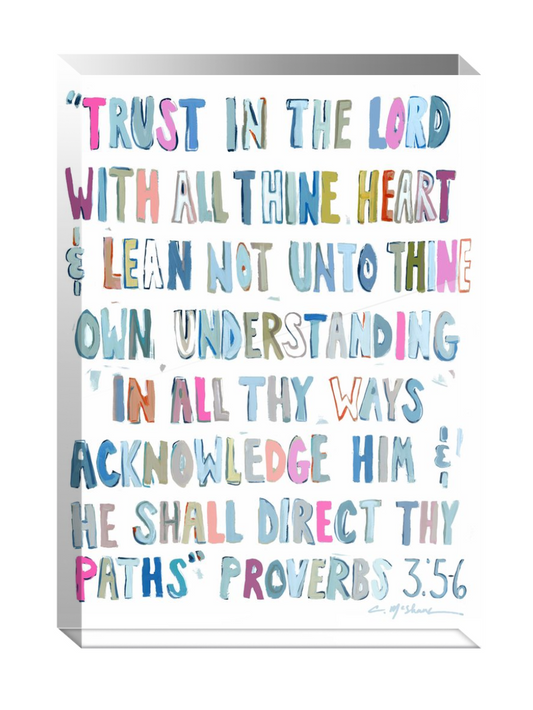 "TRUST IN THE LORD
WITH ALL THINE HEART
& LEAN NOT UNTO THINE
OWN UNDERSTANDING
IN ALL THY WAYS
ACKNOWLEDGE HIM &
HE SHALL DIRECT THY
PATHS" PROVERBS 3:56
C. McShane